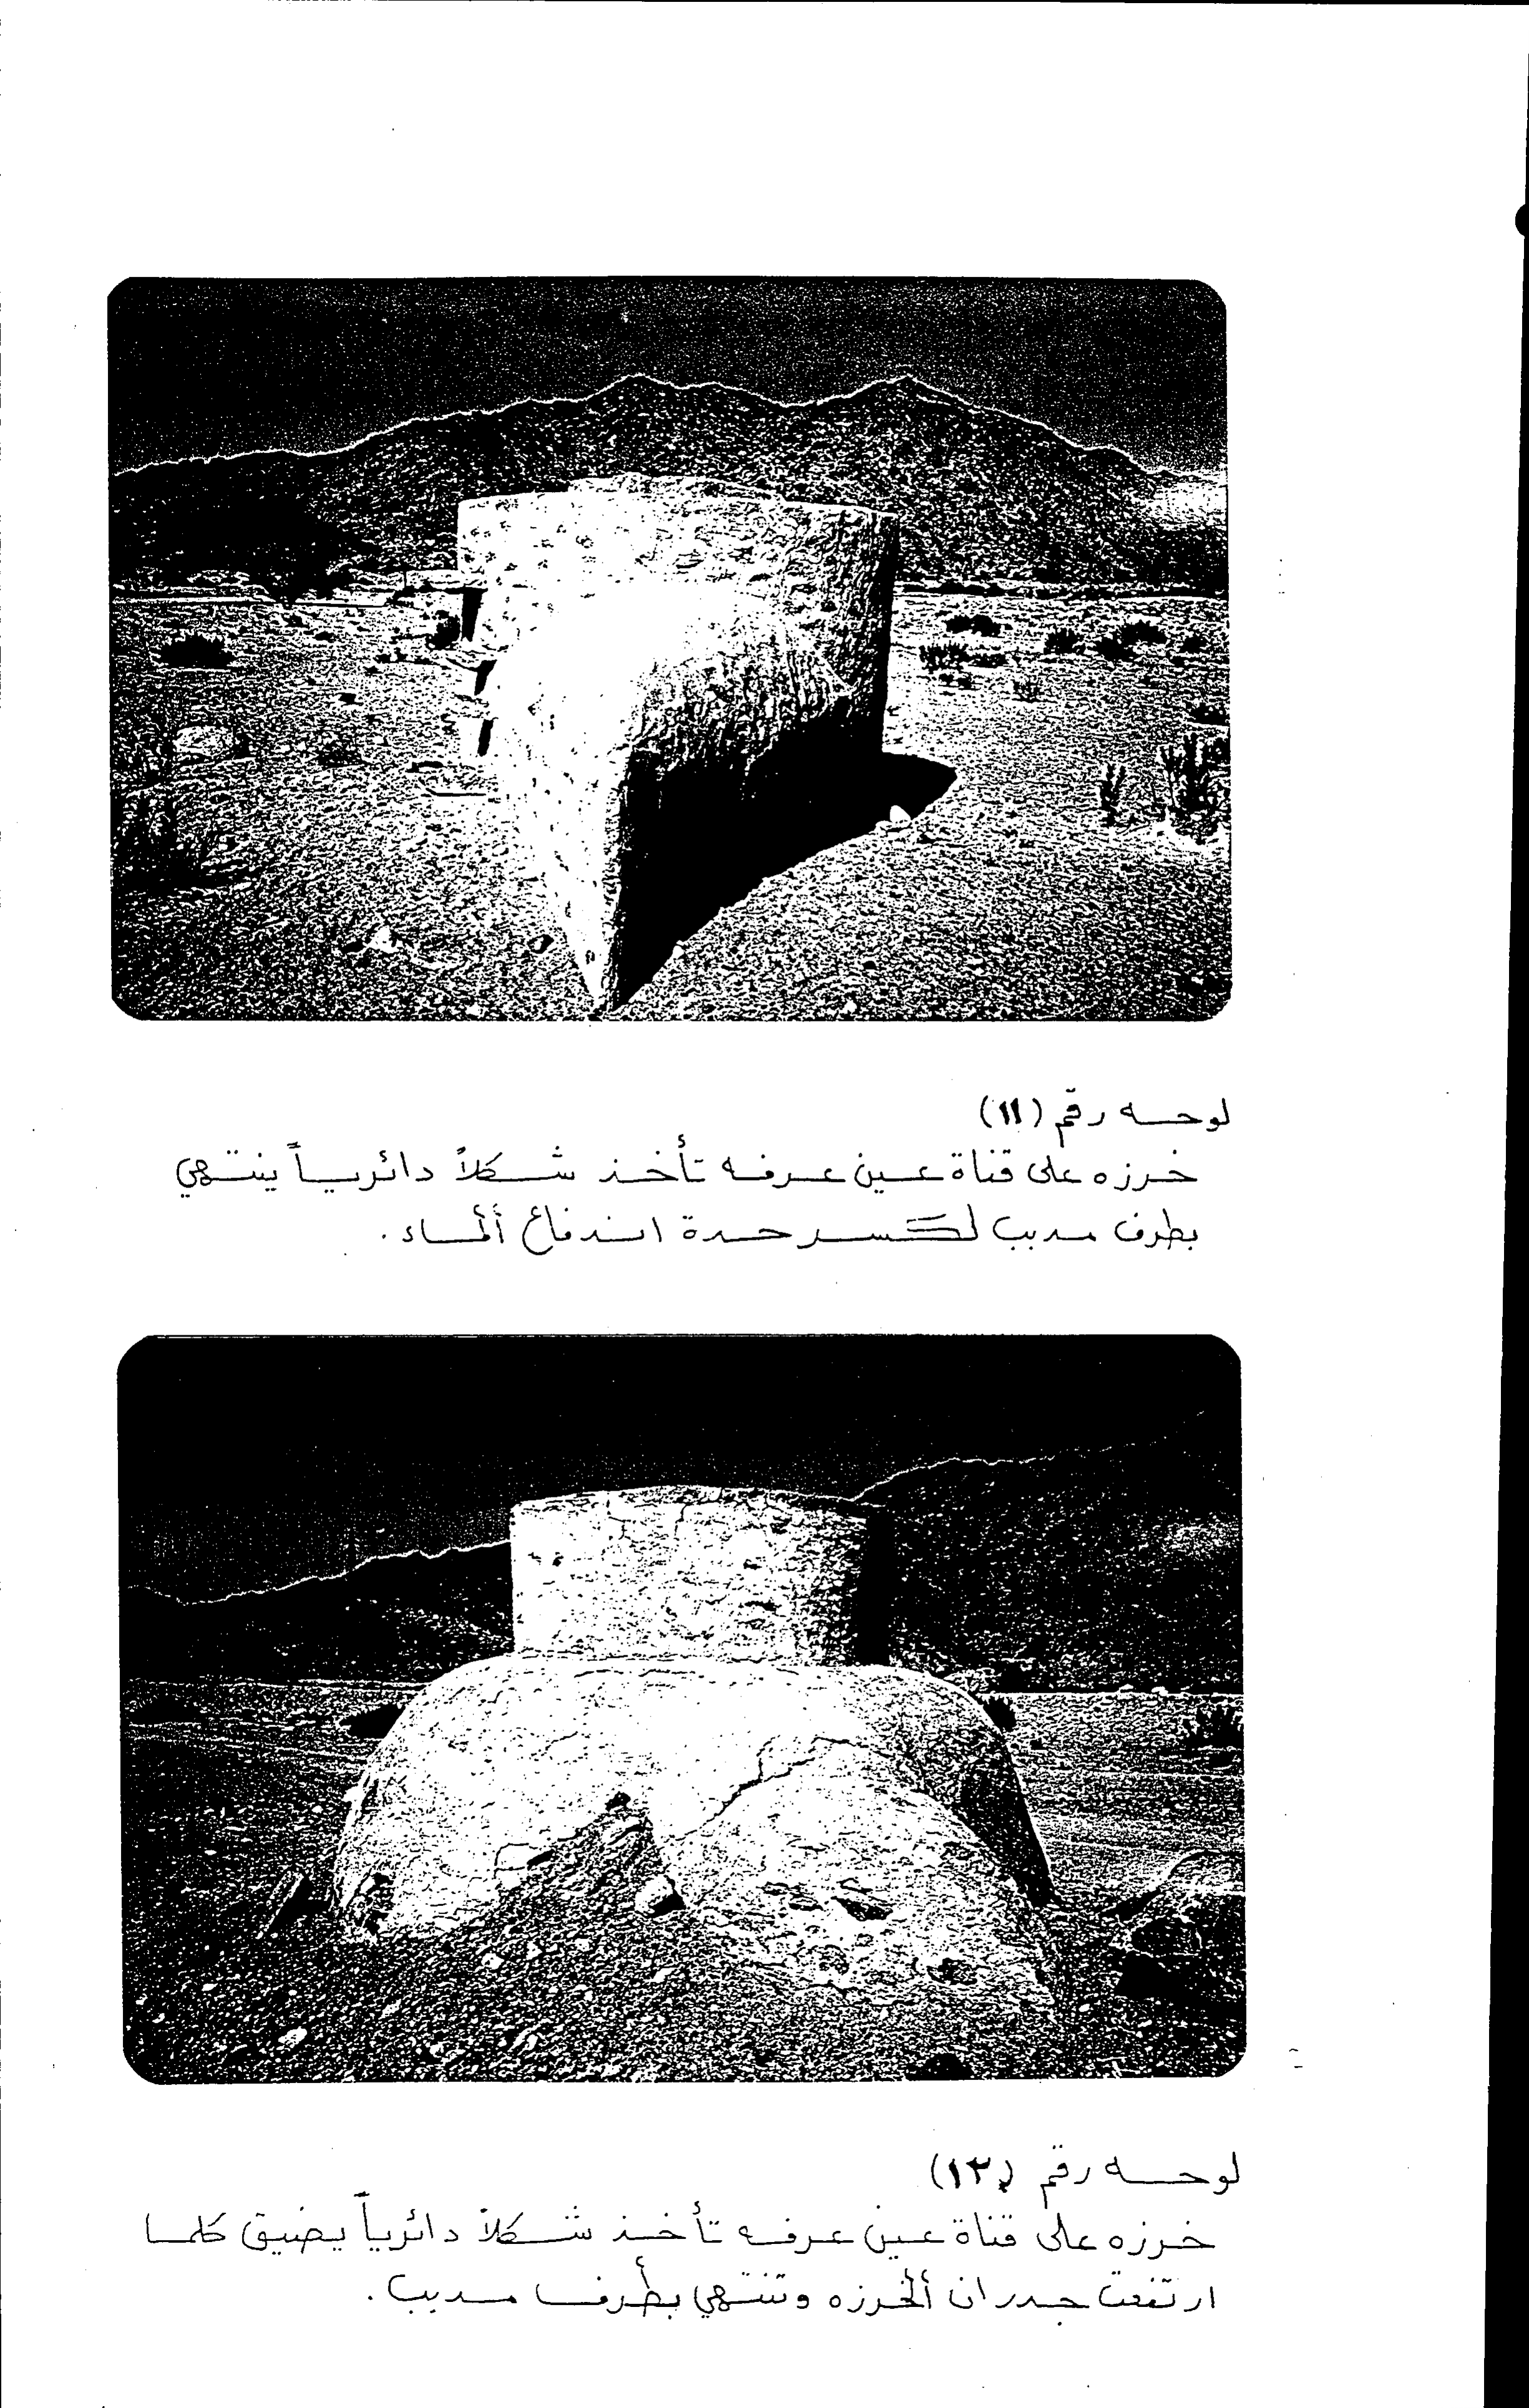 لوحه رقم (١١)
خرزه على قناة عين عرفه تأخذ شكلاً دائرياً ينتهي
بطرف مدبب لكسر حدة اندفاع ألماء .
لوحه رقم (١٢)
خرزه على قناة عين عرفه تأخذ شكلاً دائرياً يضيق كلما
ارتفعت جدران ألخرزه وتنتهي بطرف مدبب .